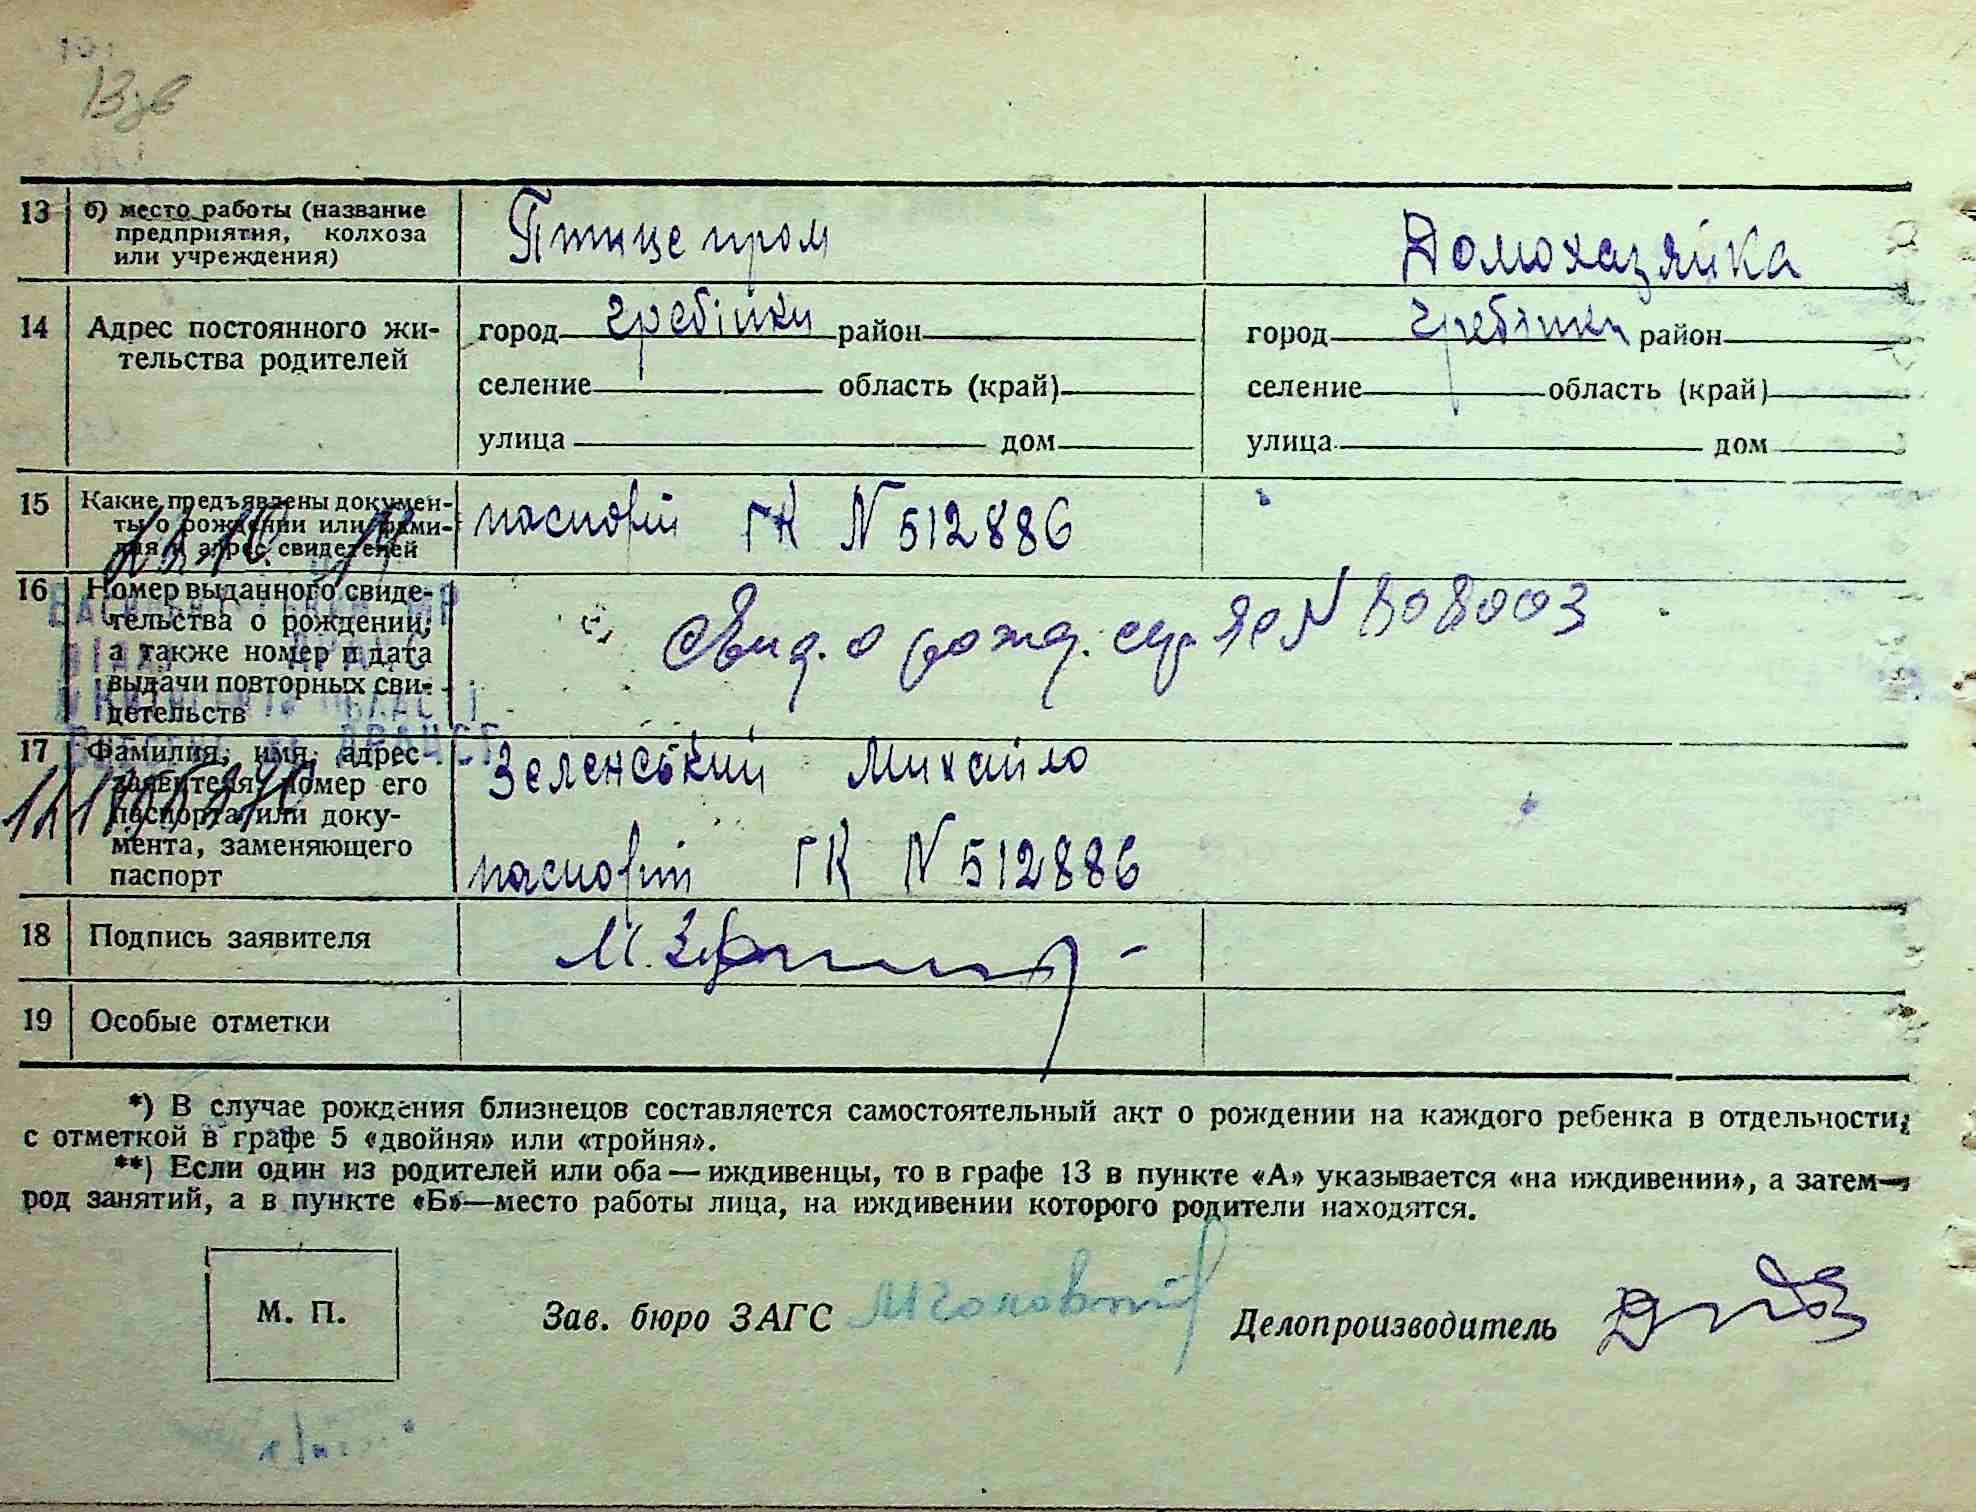 13зв
13 б) место работы (название предприятия, колхоза или учреждения) Птице пром Домохазяйка
14 Адрес постоянного жи-
тельства родителей
город гребінки район город гребінки район
селение область (край) селение область (край)
улица дом улица дом
15 Какие предъявлены докумен-
ты о рождении или фами-
лия и адрес свидетелей
паспорт ГК N 512886
16 Номер выданного свиде-
тельства о рождении,
а также номер и дата
выдачи повторных сви-
детельств
Свид. о рожд. N 808003
17 Фамилия, имя, адрес
заявителя, номер его
паспорта или доку-
мента, заменяющего
паспорт
Зеленський Михайло
паспорт ГК N 512886
18 Подпись заявителя
19 Особые отметки
*) В случае рождения близнецов составляется самостоятельный акт о рождении на каждого ребенка в отдельности,
с отметкой в графе 5 «двойня» или «тройня».
**) Если один из родителей или оба — иждивенцы, то в графе 13 в пункте «А» указывается «на иждивении», а затем—
род занятий, а в пункте «Б»—место работы лица, на иждивении которого родители находятся.
М. П.
Зав. бюро ЗАГС Делопроизводитель